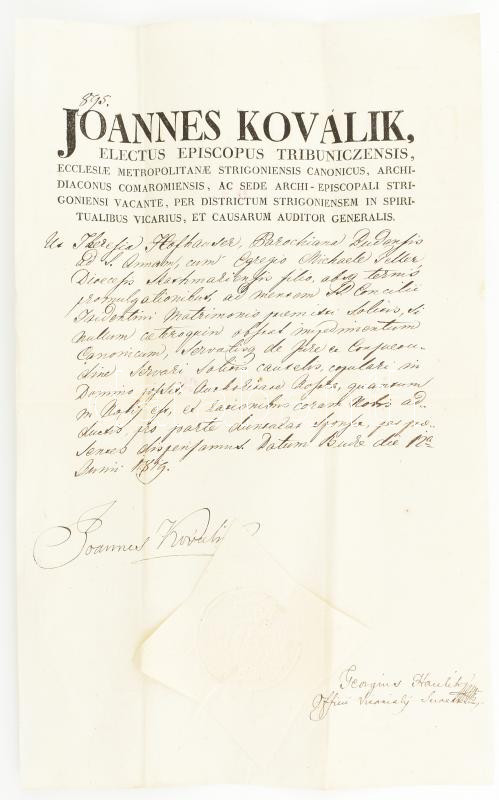 895.
JOANNES KOVÁLIK,
ELECTUS EPISCOPUS TRIBUNICZENSIS,
ECCLESIÆ METROPOLITANÆ STRIGONIENSIS CANONICUS, ARCHI-
DIACONUS COMAROMIENSIS, AC SEDE ARCHI-EPISCOPALI STRI-
GONIENSI VACANTE, PER DISTRICTUM STRIGONIENSEM IN SPIRI-
TUALIBUS VICARIUS, ET CAUSARUM AUDITOR GENERALIS.
Ut Theresia Hofbauser, Parochiana Budensis
ad S. Annam, cum Egregio Michaele Teller
Dioecesis Szathmariensis filio, absq ternis
promulgationibus, ad mentem S. Concilii
Tridentini Matrimonio praemitti solitis, si
nullum caeteroquin obstet impedimentum
Canonicum, servatisq de Jure et Consvetu-
dine servari solitis cautelis, copulari in
Domino possit, Authoritate Nostra, quantum
in Nobis est, ex rationibus coram Nobis ad-
ductis, pro parte sponsae, per prae-
sentes dispensamus. Datum Budae die
Junii 1819.
Joannes Kovalik
Georgius Haulik
Officii Vicarialis